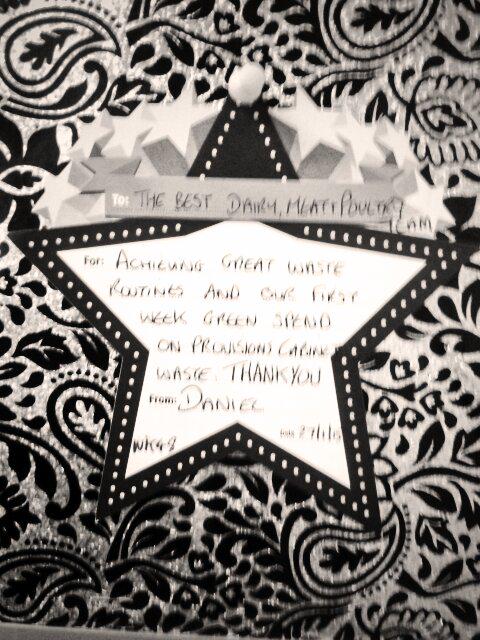 TO: THE BEST DAIRY, MEAT & POULTRY
TEAM
FOR: ACHIEVING GREAT WASTE
ROUTINES AND OUR FIRST
WEEK GREEN SPEND
ON PROVISIONS CABINET
WASTE. THANKYOU
FROM: DANIEL
WK48